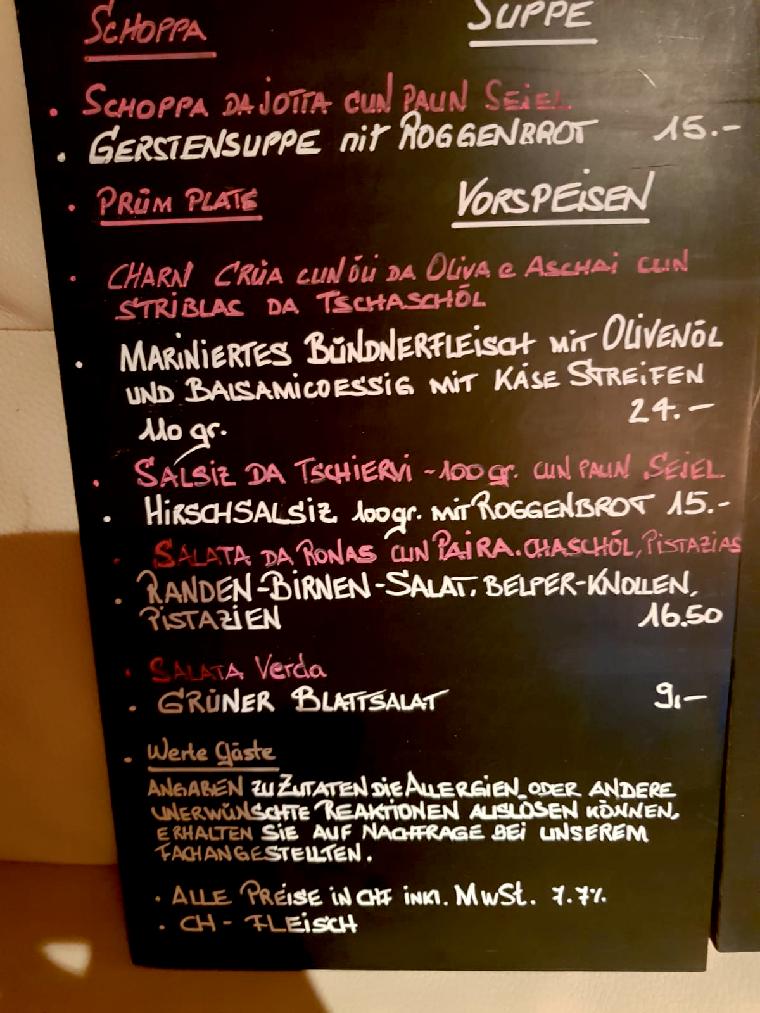 SCHOPPA SUPPE
• SCHOPPA DA JOTTA CUN PAUN SEJEL
• GERSTENSUPPE mit ROGGENBROT 15.-
• PRÜM PLATE VORSPEISEN
• CHARN CRÜA CUN ÖLI DA OLIVA e ASCHAI CUN
STRIBLAS DA TSCHASCHÖL
• MARINIERTES BÜNDNERFLEISCH MIT OLIVENÖL
UND BALSAMICOESSIG MIT KÄSE STREIFEN
110 gr. 24.-
• SALSIZ DA TSCHIERVI - 100 gr. CUN PAUN SEJEL
• HIRSCHSALSIZ 100gr. MIT ROGGENBROT 15.-
• SALATA DA RONAS CUN PAIRA. CHASCHÖL, PISTAZIAS
• RANDEN-BIRNEN-SALAT, BELPER-KNOLLEN,
PISTAZIEN 16.50
• SALATA Verda
• GRÜNER BLATTSALAT 9.-
• Werte Gäste
ANGABEN ZU ZUTATEN DIE ALLERGIEN ODER ANDERE
UNERWÜNSCHTE REAKTIONEN AUSLÖSEN KÖNNEN,
ERHALTEN SIE AUF NACHFRAGE BEI UNSEREM
FACHANGESTELLTEN.
• ALLE PREISE IN CHF INKL. MwSt. 7.7%
• CH - FLEISCH